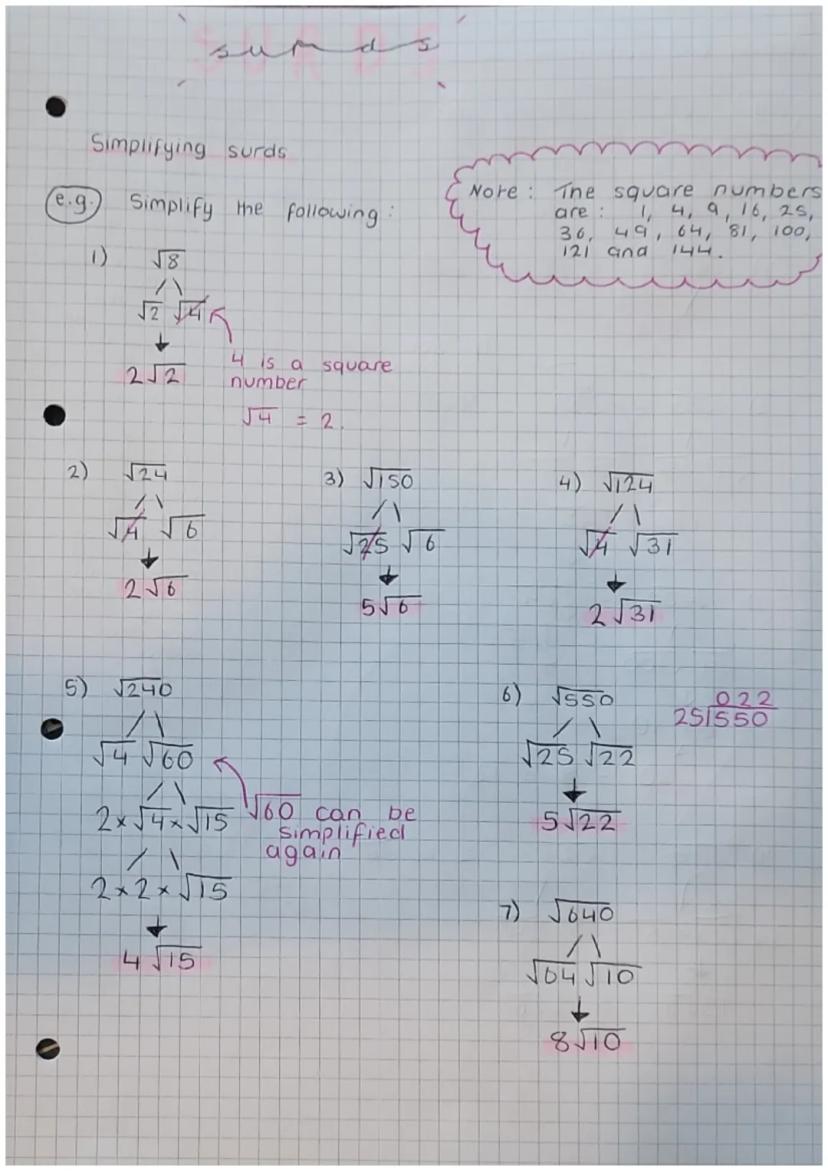 SURDS
surds
Simplifying surds
e.g. Simplify the following:
Note: The square numbers
are: 1, 4, 9, 16, 25,
36, 49, 64, 81, 100,
121 and 144.
1) √8
√2 √4
2√2
4 is a square
number
√4 = 2.
2) √24
√4 √6
2√6
3) √150
√25 √6
5√6
4) √124
√4 √31
2√31
5) √240
√4 √60
2×√4×√15
2×2×√15
4√15
√60 can be
simplified
again
6) √550
√25 √22
5√22
022
25|550
7) √640
√64 √10
8√10